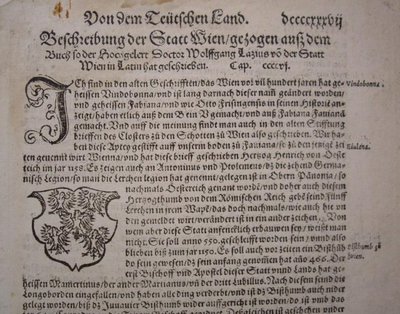 Von dem Teütschen Land. dccccxxxvij
Beschreibung der Statt Wien/ gezogen auß dem
Buch so der Hochgelert Doctor Wolffgang Lazius võ der Statt
Wien in Latin hat geschrieben. Cap. ccccvj.
Ich find in den alten Geschrifften/ das Wien vor vil hundert jaren hat ge-
heissen Vindobonna/ und ist lang darnach dieser nam geändert worden/
und geheissen Fabiana/ und wie Otto Frisingensis in seinen Historiē an-
zeigt/ haben etlich auß dem B ein V gemacht/ und auß Fabiana Faviana
gemacht. Und auff die meinung findt man auch in den alten Stifftung
brieffen des Closters zu den Schotten zu Wien also geschrieben. Wir ha-
ben diese Aptey gestifft auff unserm boden zu Faviana/ die zu den zeiten
ten genennt wirt Wienna/ und hat diese brieff geschrieben Hertzog Henrich von Oest-
reich im jar 1158. Es zeigen auch an Antoninus und Ptolemeus/ dz die zehend Germa-
nisch Legion/ so man die Lerchen legion hat genennt/ gelegen ist in Obern Panonia/ so
nachmals Oesterreich genant worde/ und daher auch diesem
Hertzogthumb von dem Römischen Reich geben seind fünff
Lerchen in irem Wapē/ das doch nachmals/ wie auch hie vn
den gemeldet wirt/ verändert ist in ein ander zeichen. Von
wem aber diese Statt anfencklich erbauwen sey/ weist man
nicht. Sie soll anno 550. geschleifft worden sein/ und also
blieben biß zum jar 1150. Es soll auch vor zeiten ein Bisthũb
do sein gewesen/ dz sein anfang genommen hat anno 466. Der
erst Bischoff und Apostel dieser Statt unnd Lands hat ge-
heissen Mamertinus/ der ander Martianus/ vñ der drit Lubillus. Nach diesen seind die
Longobarden eingefallen/ und haben alle ding verderbt/ und ist dz Bisthumb auch nider
gelegt worden/ biß dz Juvauier Bisthumb wider auffgericht ist worden/ do ist vnd das
Vindobonna.
Bisthumb zu
Wien.